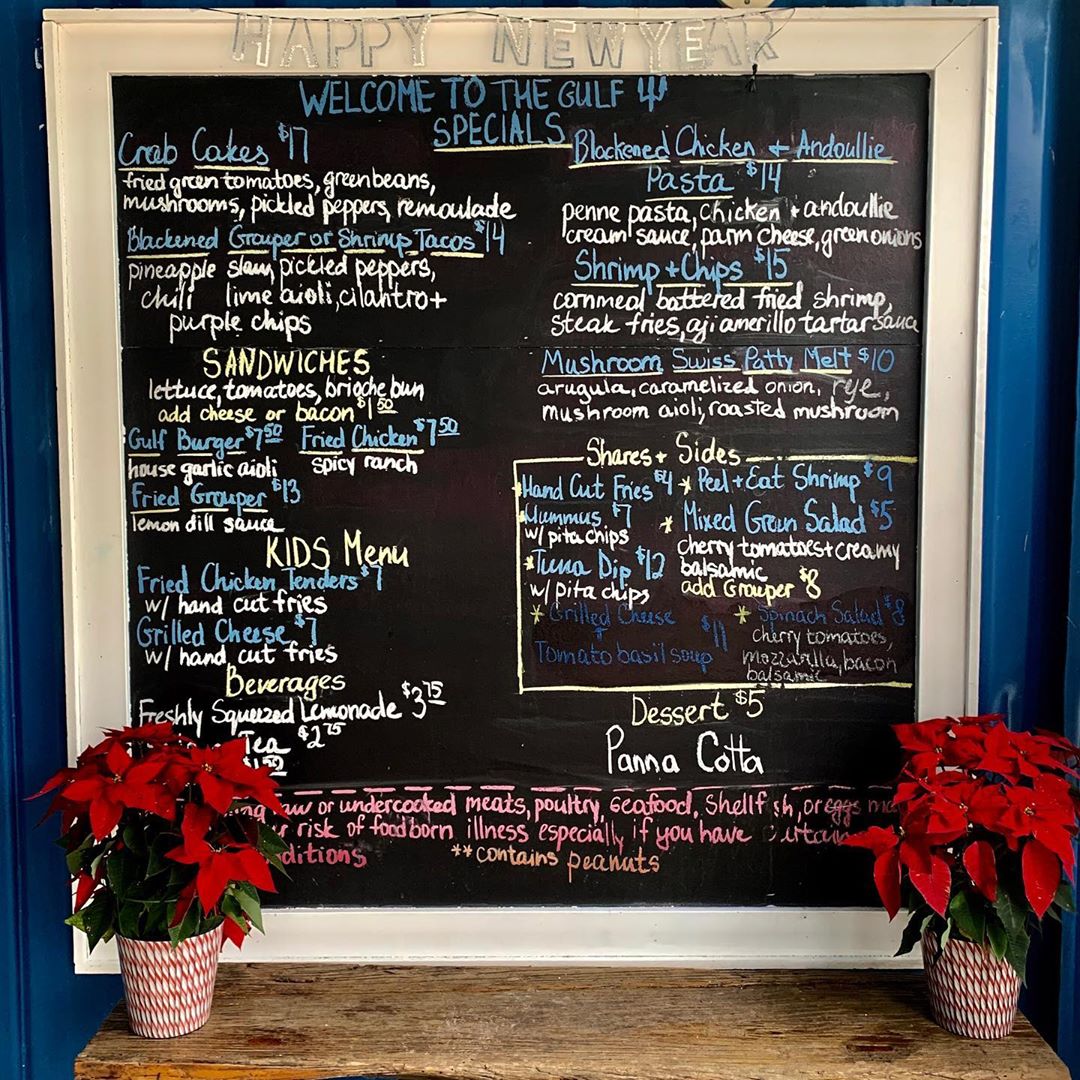 HAPPY NEW YEAR
WELCOME TO THE GULF
SPECIALS
Crab Cakes $17
fried green tomatoes, green beans,
mushrooms, pickled peppers, remoulade
Blackened Grouper or Shrimp Tacos $14
pineapple slaw, pickled peppers,
chili lime aioli, cilantro +
purple chips
SANDWICHES
lettuce, tomatoes, brioche bun
add cheese or bacon $1.50
Gulf Burger $7.50 Fried Chicken $7.50
house garlic aioli spicy ranch
Fried Grouper $13
lemon dill sauce
KIDS Menu
Fried Chicken Tenders $7
w/ hand cut fries
Grilled Cheese $7
w/ hand cut fries
Beverages
Freshly Squeezed Lemonade $3.75
Tea $2.75
$1.50
Blackened Chicken + Andoullie
Pasta $14
penne pasta, chicken + andoullie
cream sauce, parm cheese, green onions
Shrimp + Chips $15
cornmeal battered fried shrimp,
steak fries, aji amerillo tartar sauce
Mushroom Swiss Patty Melt $10
arugula, caramelized onion, rye,
mushroom aioli, roasted mushroom
Shares + Sides
Hand Cut Fries $4 * Peel + Eat Shrimp $9
*Hummus $7 * Mixed Green Salad $5
w/ pita chips cherry tomatoes + creamy
*Tuna Dip $12 balsamic
w/ pita chips add Grouper $8
* Grilled Cheese * Spinach Salad $8
+ $11 cherry tomatoes,
Tomato basil soup mozzarilla, bacon
balsamic
Dessert $5
Panna Cotta
raw or undercooked meats, poultry, seafood, shellfish, or eggs
risk of foodborn illness especially if you have
**contains peanuts